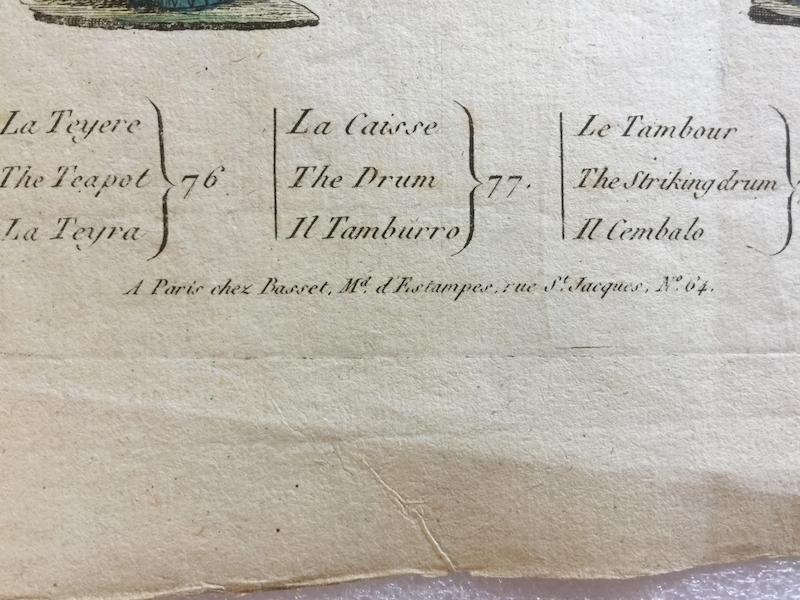 La Teyere
The Teapot
La Teyra
76
La Caisse
The Drum
Il Tamburro
77.
Le Tambour
The Striking drum
Il Cembalo
A Paris chez Basset, Md. d'Estampes, rue St. Jacques, No. 64.